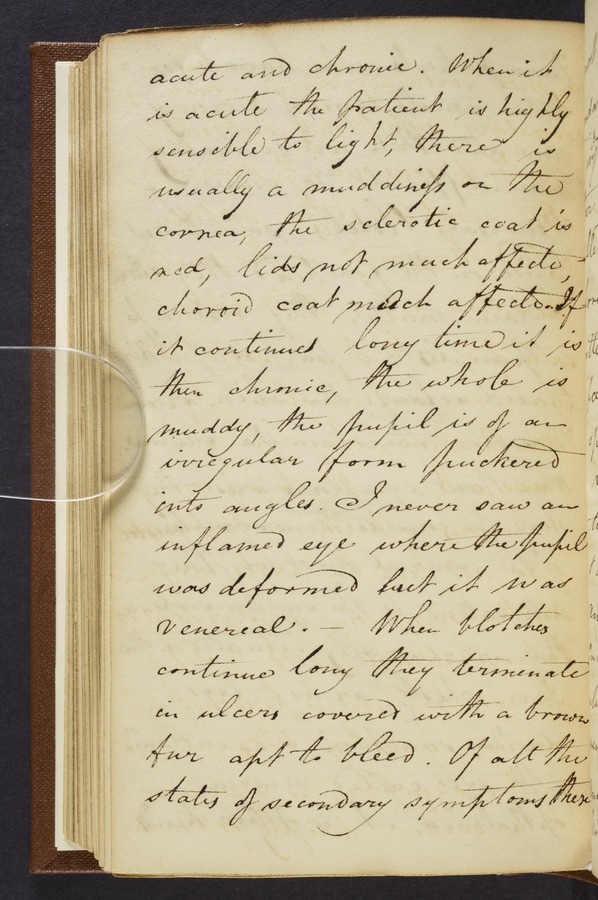 acute and chronic. When it
is acute the patient is highly
sensible to light, there is
usually a muddiness on the
cornea, the sclerotic coat is
red, lids not much affecte,
choroid coat much affecte. If
it continues long time it is
then chronic, the whole is
muddy, the pupil is of an
irregular form puckered
into angles. I never saw an
inflamed eye where the pupil
was deformed but it was
venereal. — When blotches
continue long they terminate
in ulcers covered with a brown
fur apt to bleed. Of all the
states of secondary symptoms there